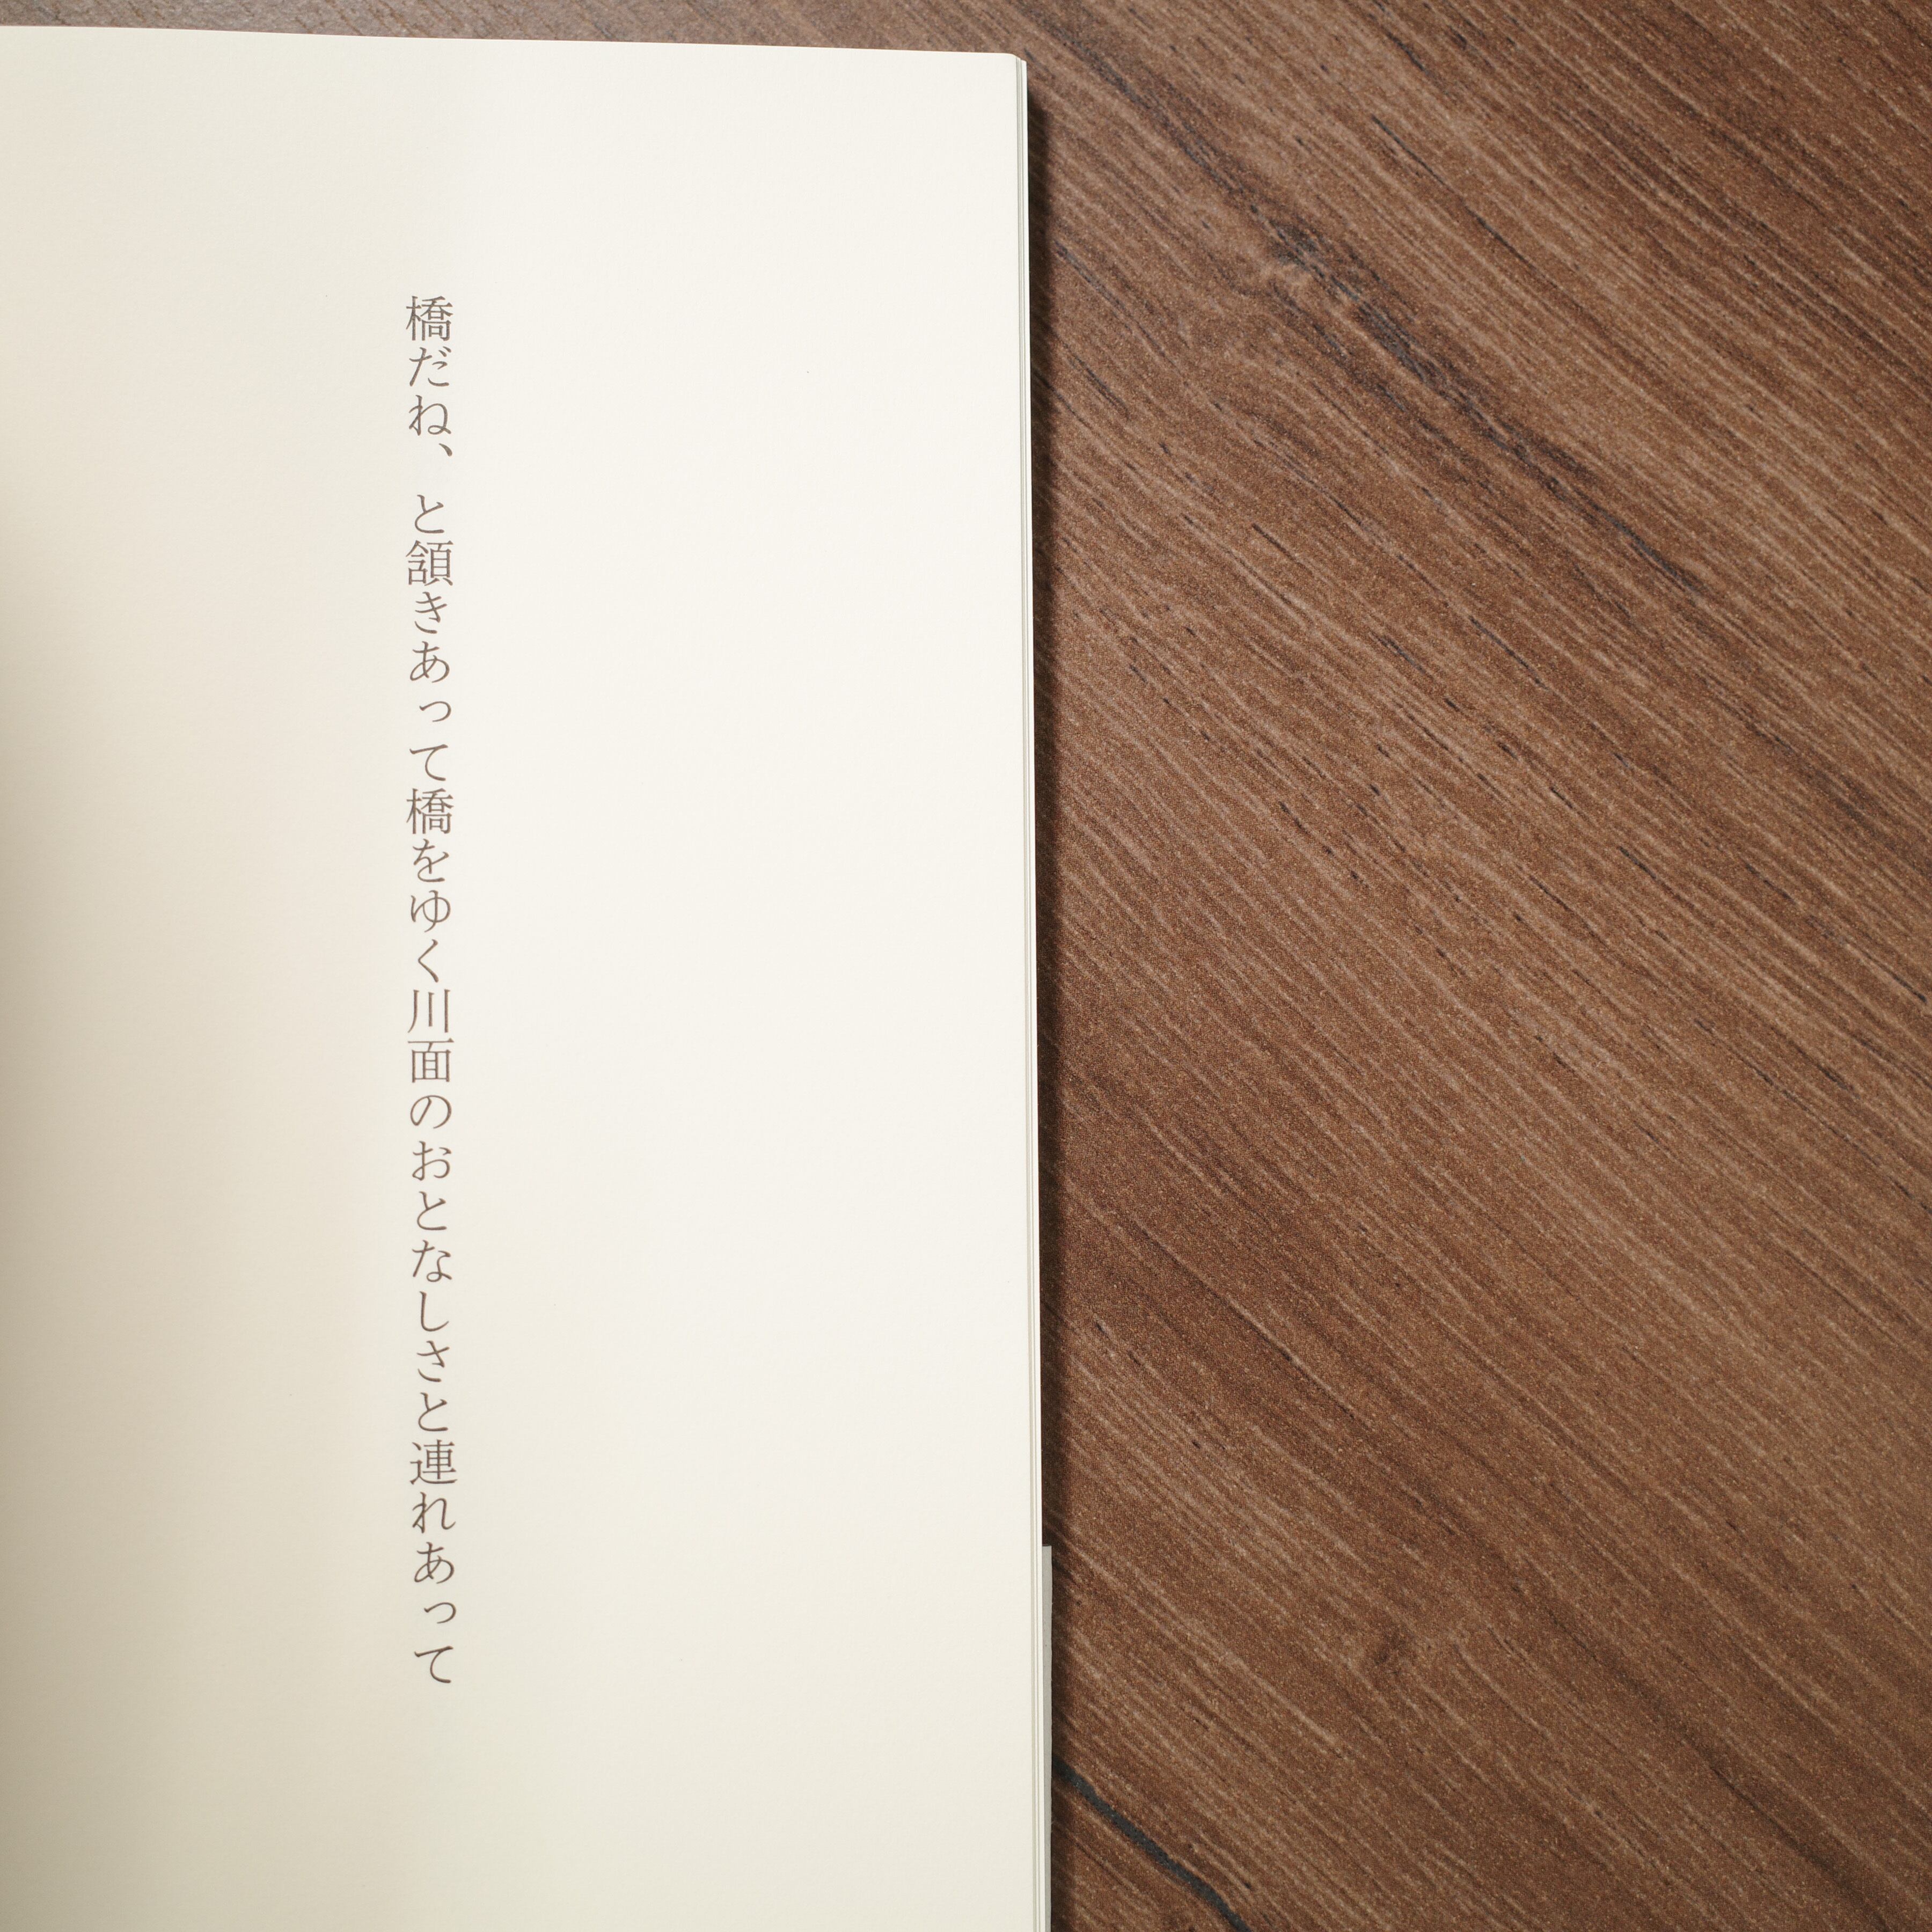 橋だね、と頷きあって橋をゆく川面のおとなしさと連れあって